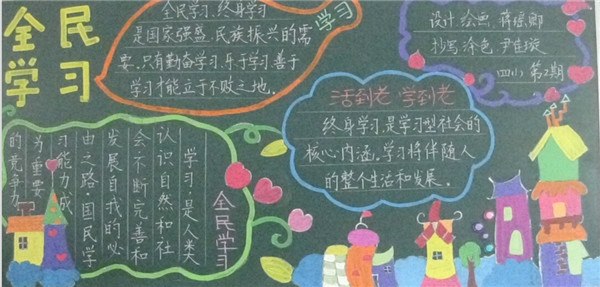 全民
学习
全民学习、终身学习
是国家强盛、民族振兴的需
要.只有勤奋学习.乐于学习.善于
学习才能立于不败之地.
学习
设计 绘画 蒋
抄写 涂色 尹佳璇
四小 第2期
活到老 学到老
终身学习是学习型社会的
核心内涵,学习将伴随人
的整个生活和发展.
全民学习
学习·是人类
认识自然和社
会不断完善和
发展自我的必
由之路·国民学
习能力成
为重要
的竞争力